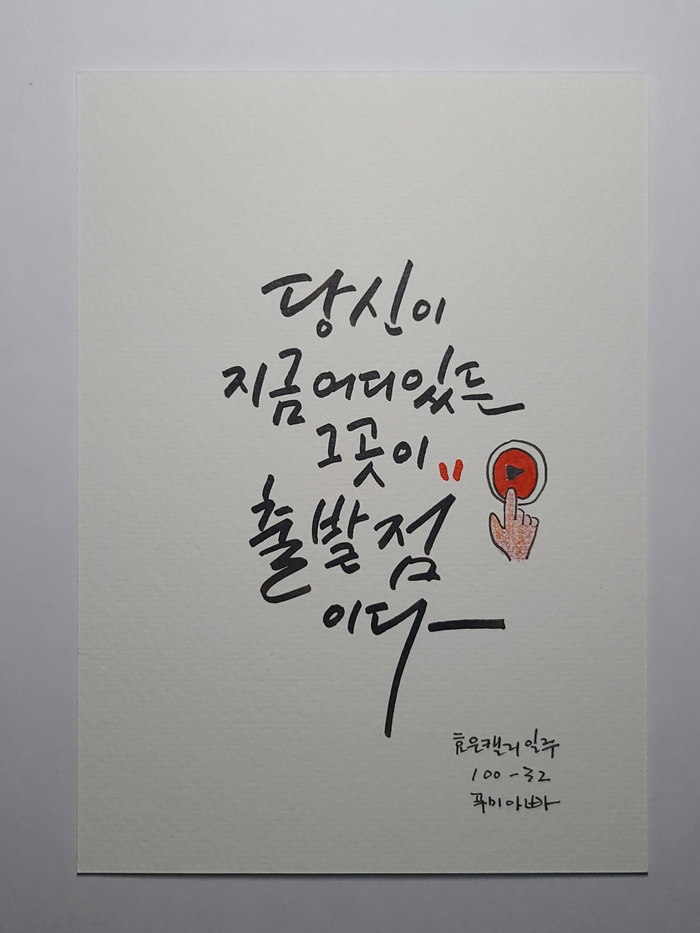 당신이
지금 어디있든
그곳이
출발점
이다
효은캘리일주
100-32
꾸미아빠